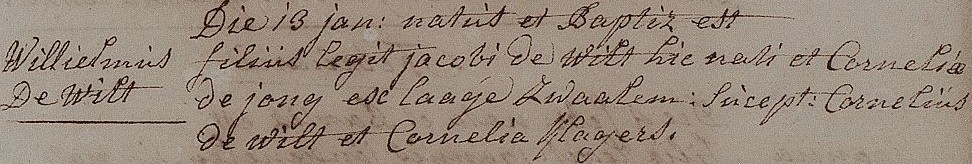 Die 13 jan: natus et Baptiz est
Willielmus filius legit jacobi de wilt hic nati et Corneliæ
De Wilt de jong exc laage Zwaalem: Sucept: Cornelius
de wilt et Cornelia Slagers.